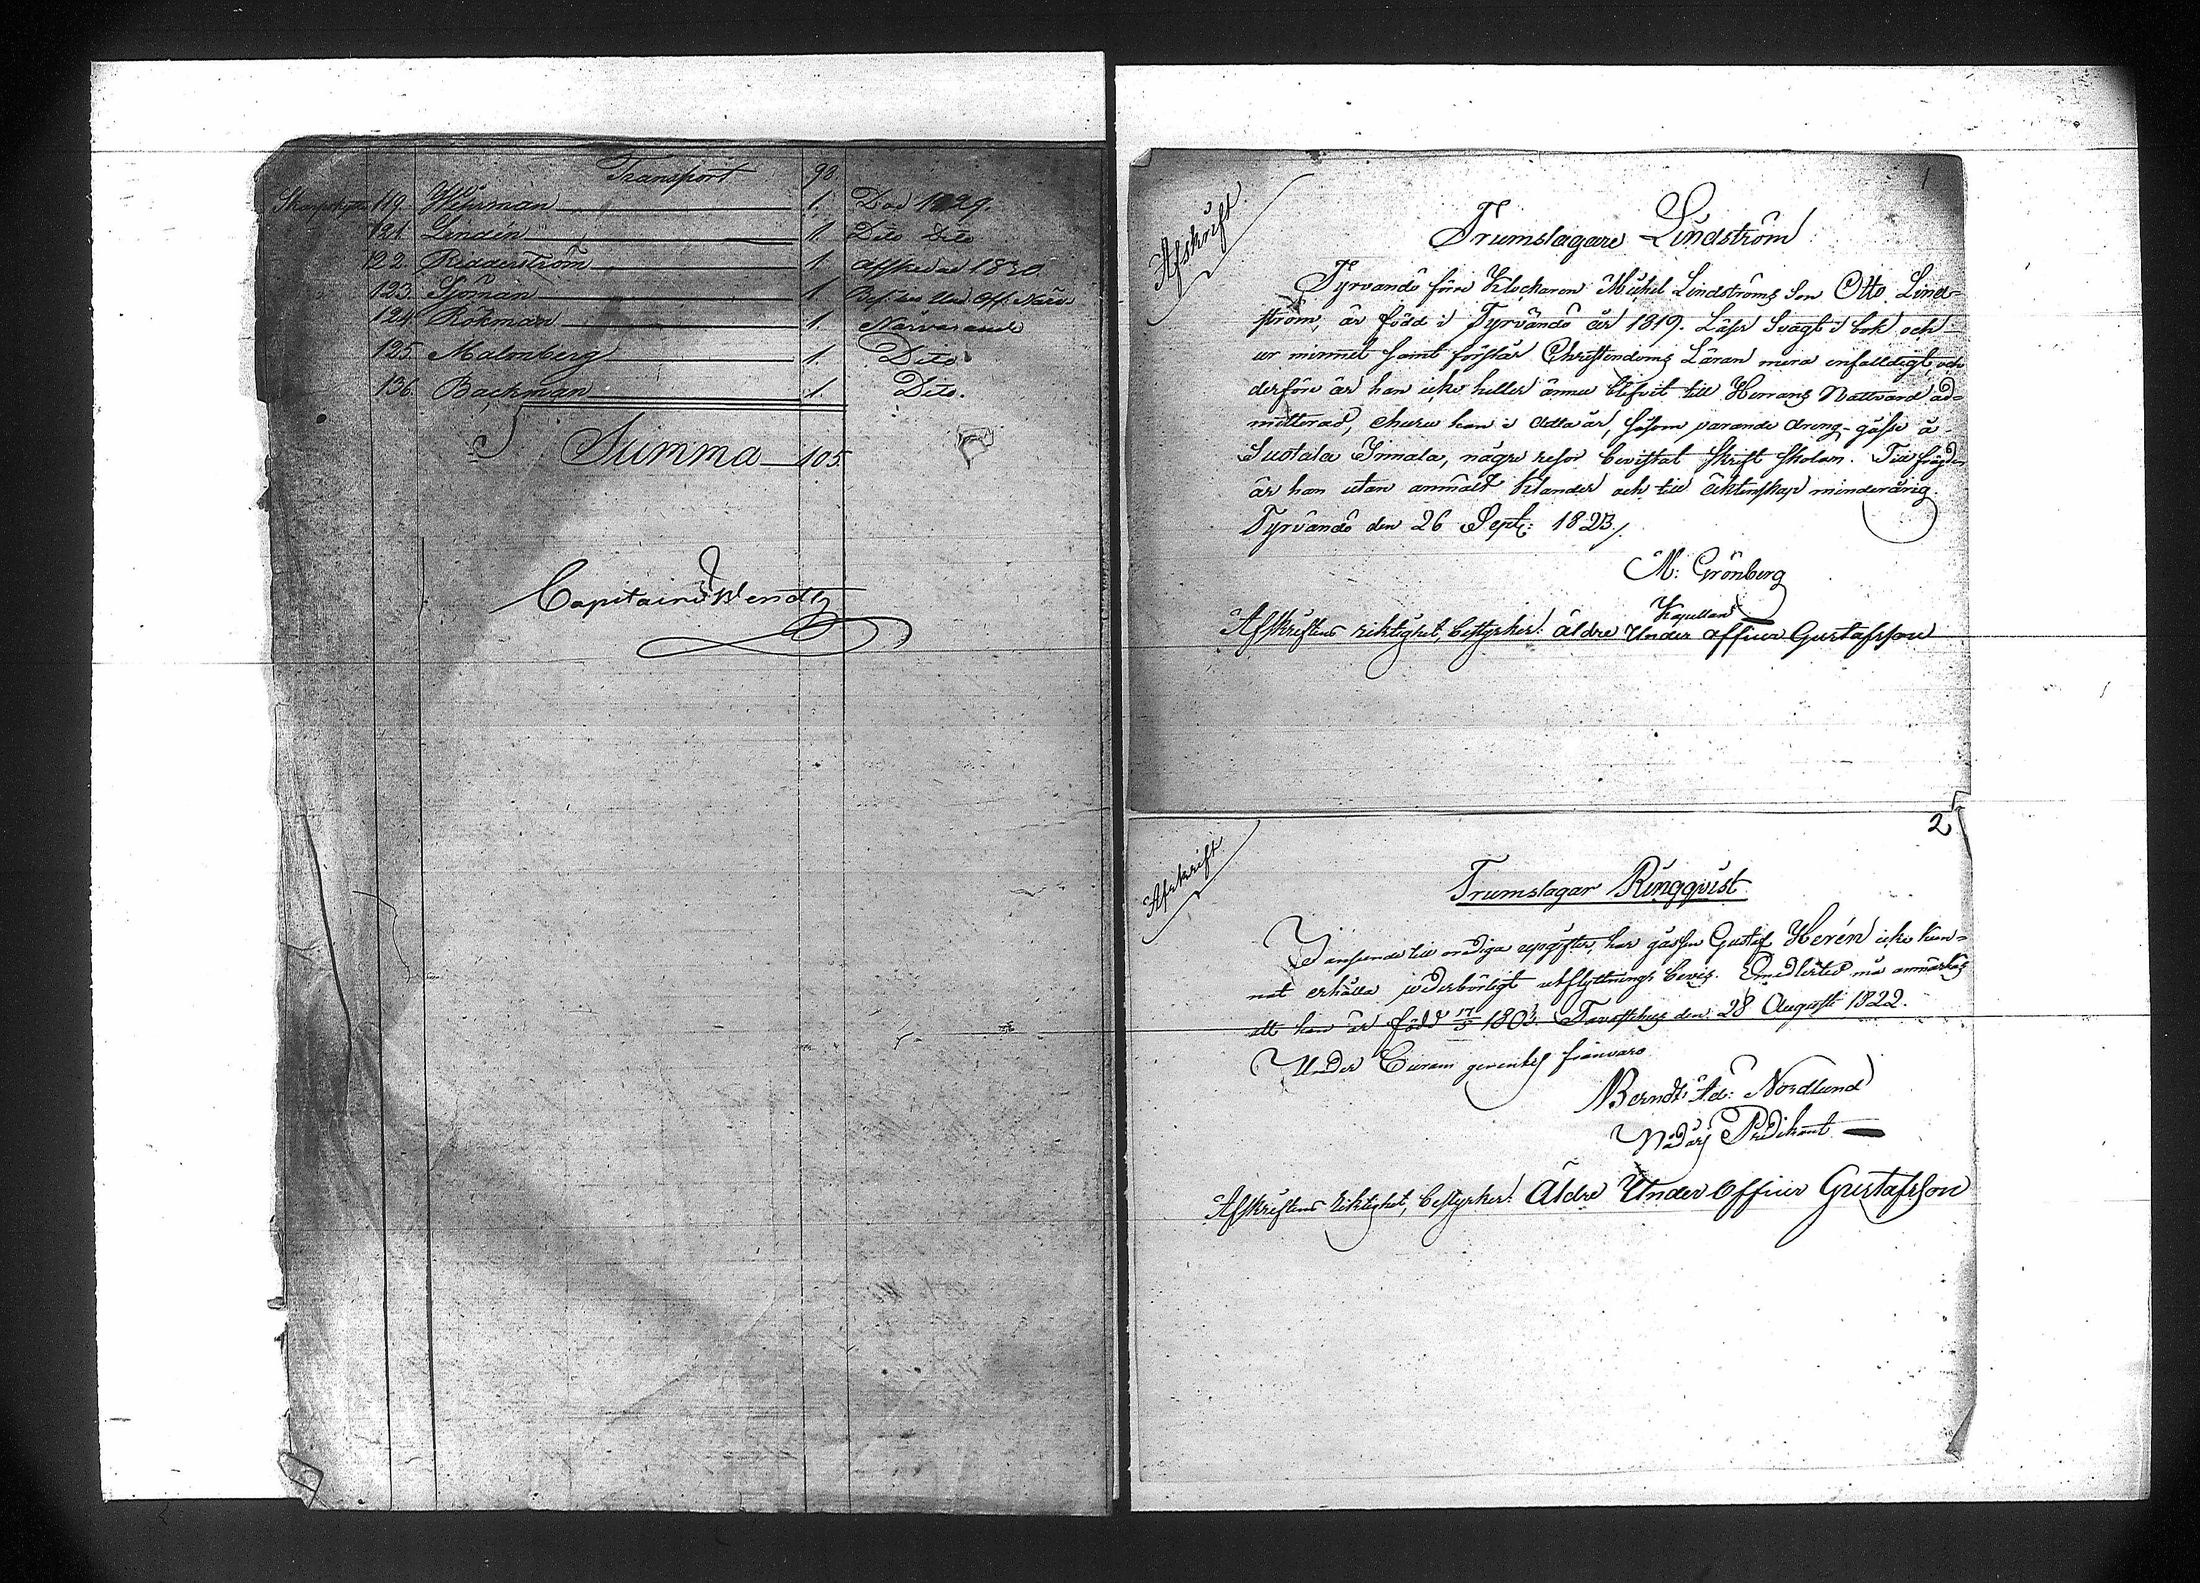 Transport 98.
Skarpskytt 119. Wihrman 1. Död 1829.
121. Lindén 1. Dito Dito
122. Ridderström 1. Afskedad 1830.
123. Sjöman 1. Bef. Und. Off.
124. Rökman 1. Närvarande
125. Malmberg 1. Dito
136. Backman 1. Dito.
Summa 105.
Capitaine Wendt
1
Afskrift
Trumslagare Lindström
Tyrvändö förre Klockaren Michel Lindströms Son Otto Lind-
ström, är född i Tyrvändö år 1819. Läser Svagt i bok och
ur minnet samt förstår Christendoms Läran mera enfalldigt, och
derföre är han icke heller ännu blefvit till Herrans Nattvard ad-
mitterad, ehuru han i detta år, såsom varande dreng-gosse å
Suotala Inmala, några resor bevistat Skrift Skolan. Till frägden
är han utan anmält klander och till äktenskap minderårig.
Tyrvändö den 26 Sept: 1823.
M: Grönberg
Kapellan
Afskriftens riktighet, bestyrker: Äldre Under officer Gustafsson
2
Afskrift
Trumslagar Ringqvist
I anseende till orediga upgifter, har gossen Gustaf Herén icke kun-
nat erhålla vederbörligt utflyttnings bevis. Emedlertid må anmärkas
att han är född 17/5 1803. Tavastehus den 28 August 1822.
Under Curam gerentis frånvaro
Berndt Ad: Nordlund
Nådårs Predikant
Afskriftens riktighet, bestyrker: Äldre Under Officer Gustafsson